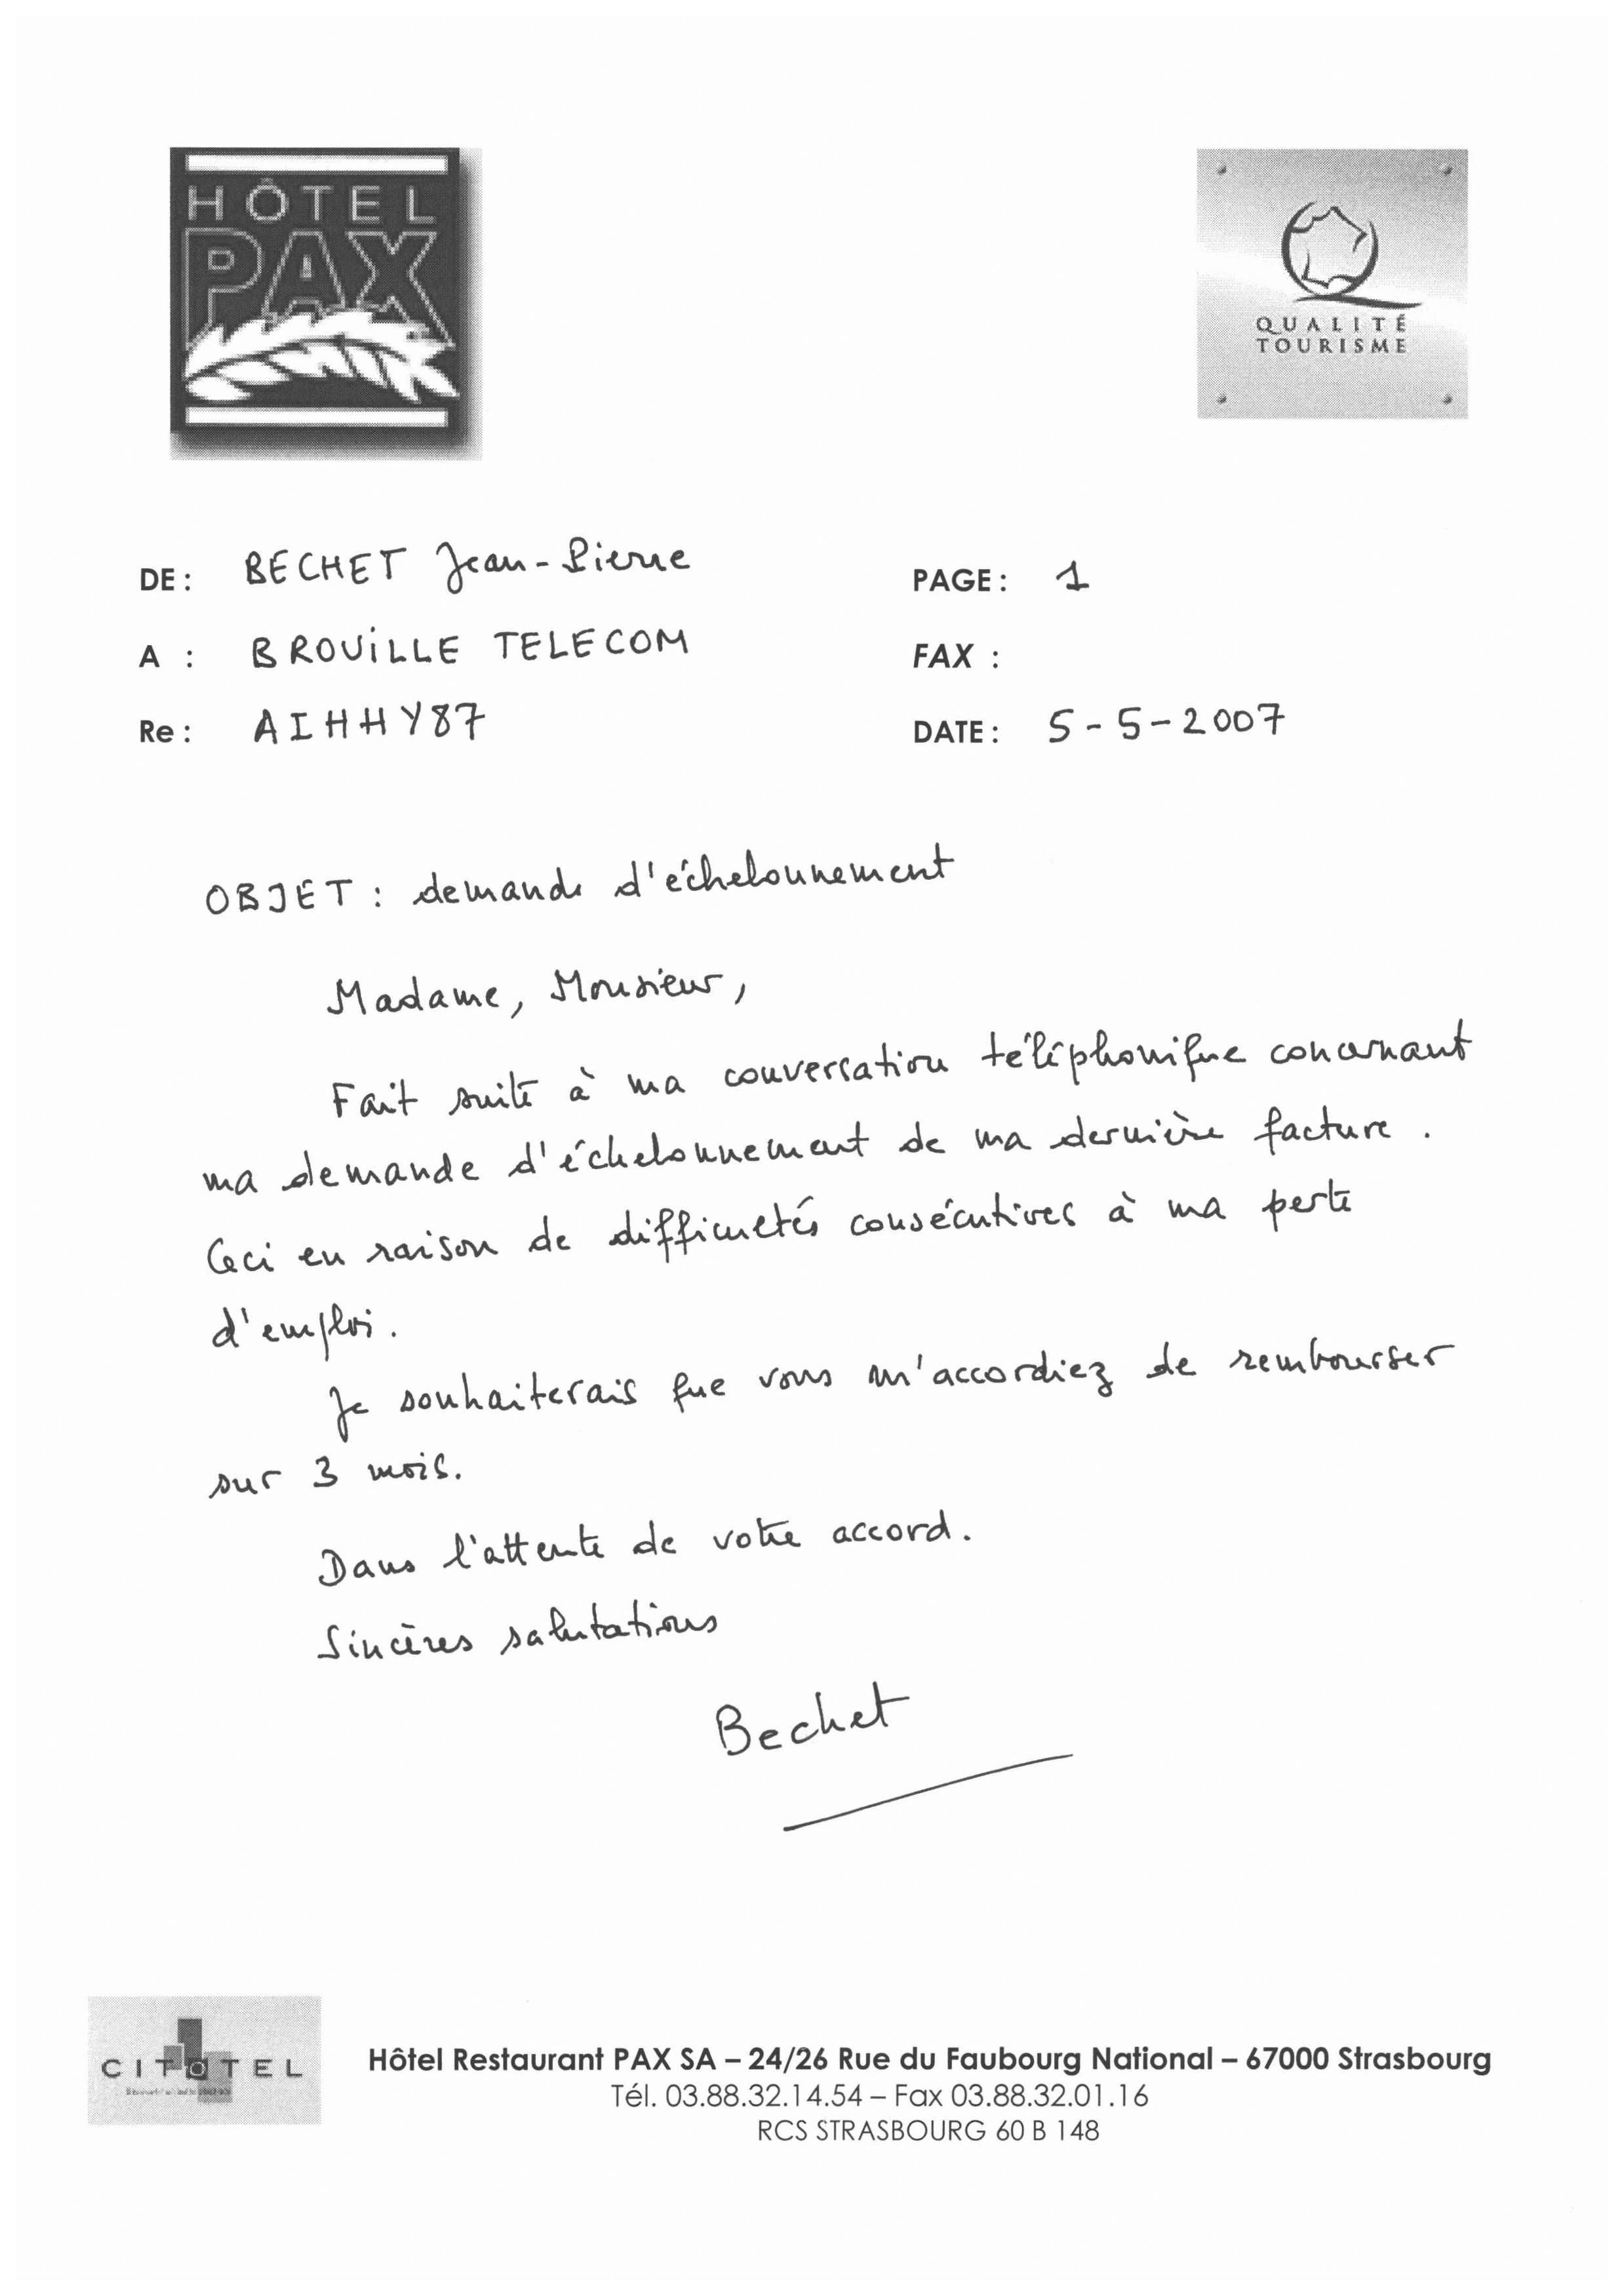 HÔTEL
PAX
QUALITÉ
TOURISME
DE : BECHET Jean-Pierre
PAGE : 1
A : BROUILLE TELECOM
FAX :
Re : AIHHY87
DATE : 5-5-2007
OBJET : demande d'échelonnement
Madame, Monsieur,
Fait suite à ma conversation téléphonique concernant
ma demande d'échelonnement de ma dernière facture .
Ceci en raison de difficultés consécutives à ma perte
d'emploi .
Je souhaiterais que vous m'accordiez de rembourser
sur 3 mois.
Dans l'attente de votre accord .
Sincères salutations
Bechet
CITOTEL
Hôtel Restaurant PAX SA – 24/26 Rue du Faubourg National – 67000 Strasbourg
Tél. 03.88.32.14.54 – Fax 03.88.32.01.16
RCS STRASBOURG 60 B 148